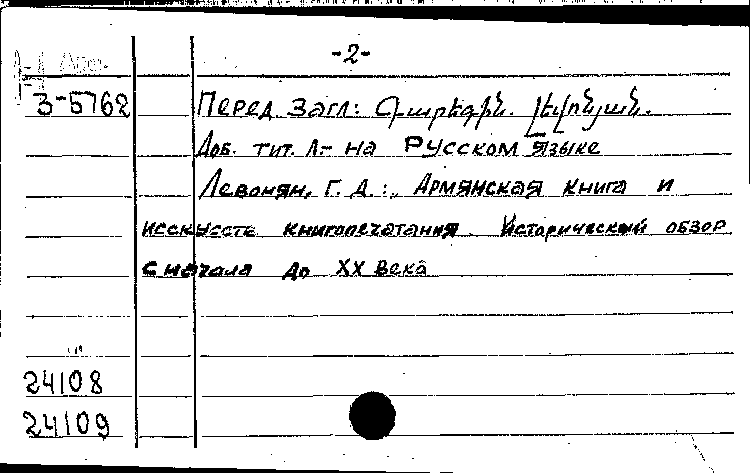 -2-
З-5762 Перед загл: Գարեգին. Լևոնյան.
Доб. тит. л.- на Русском языке
Левонян, Г. Д.:, Армянская книга и
исскусств книгопечатания. Исторический обзор
с начала до XX века
24108
24109